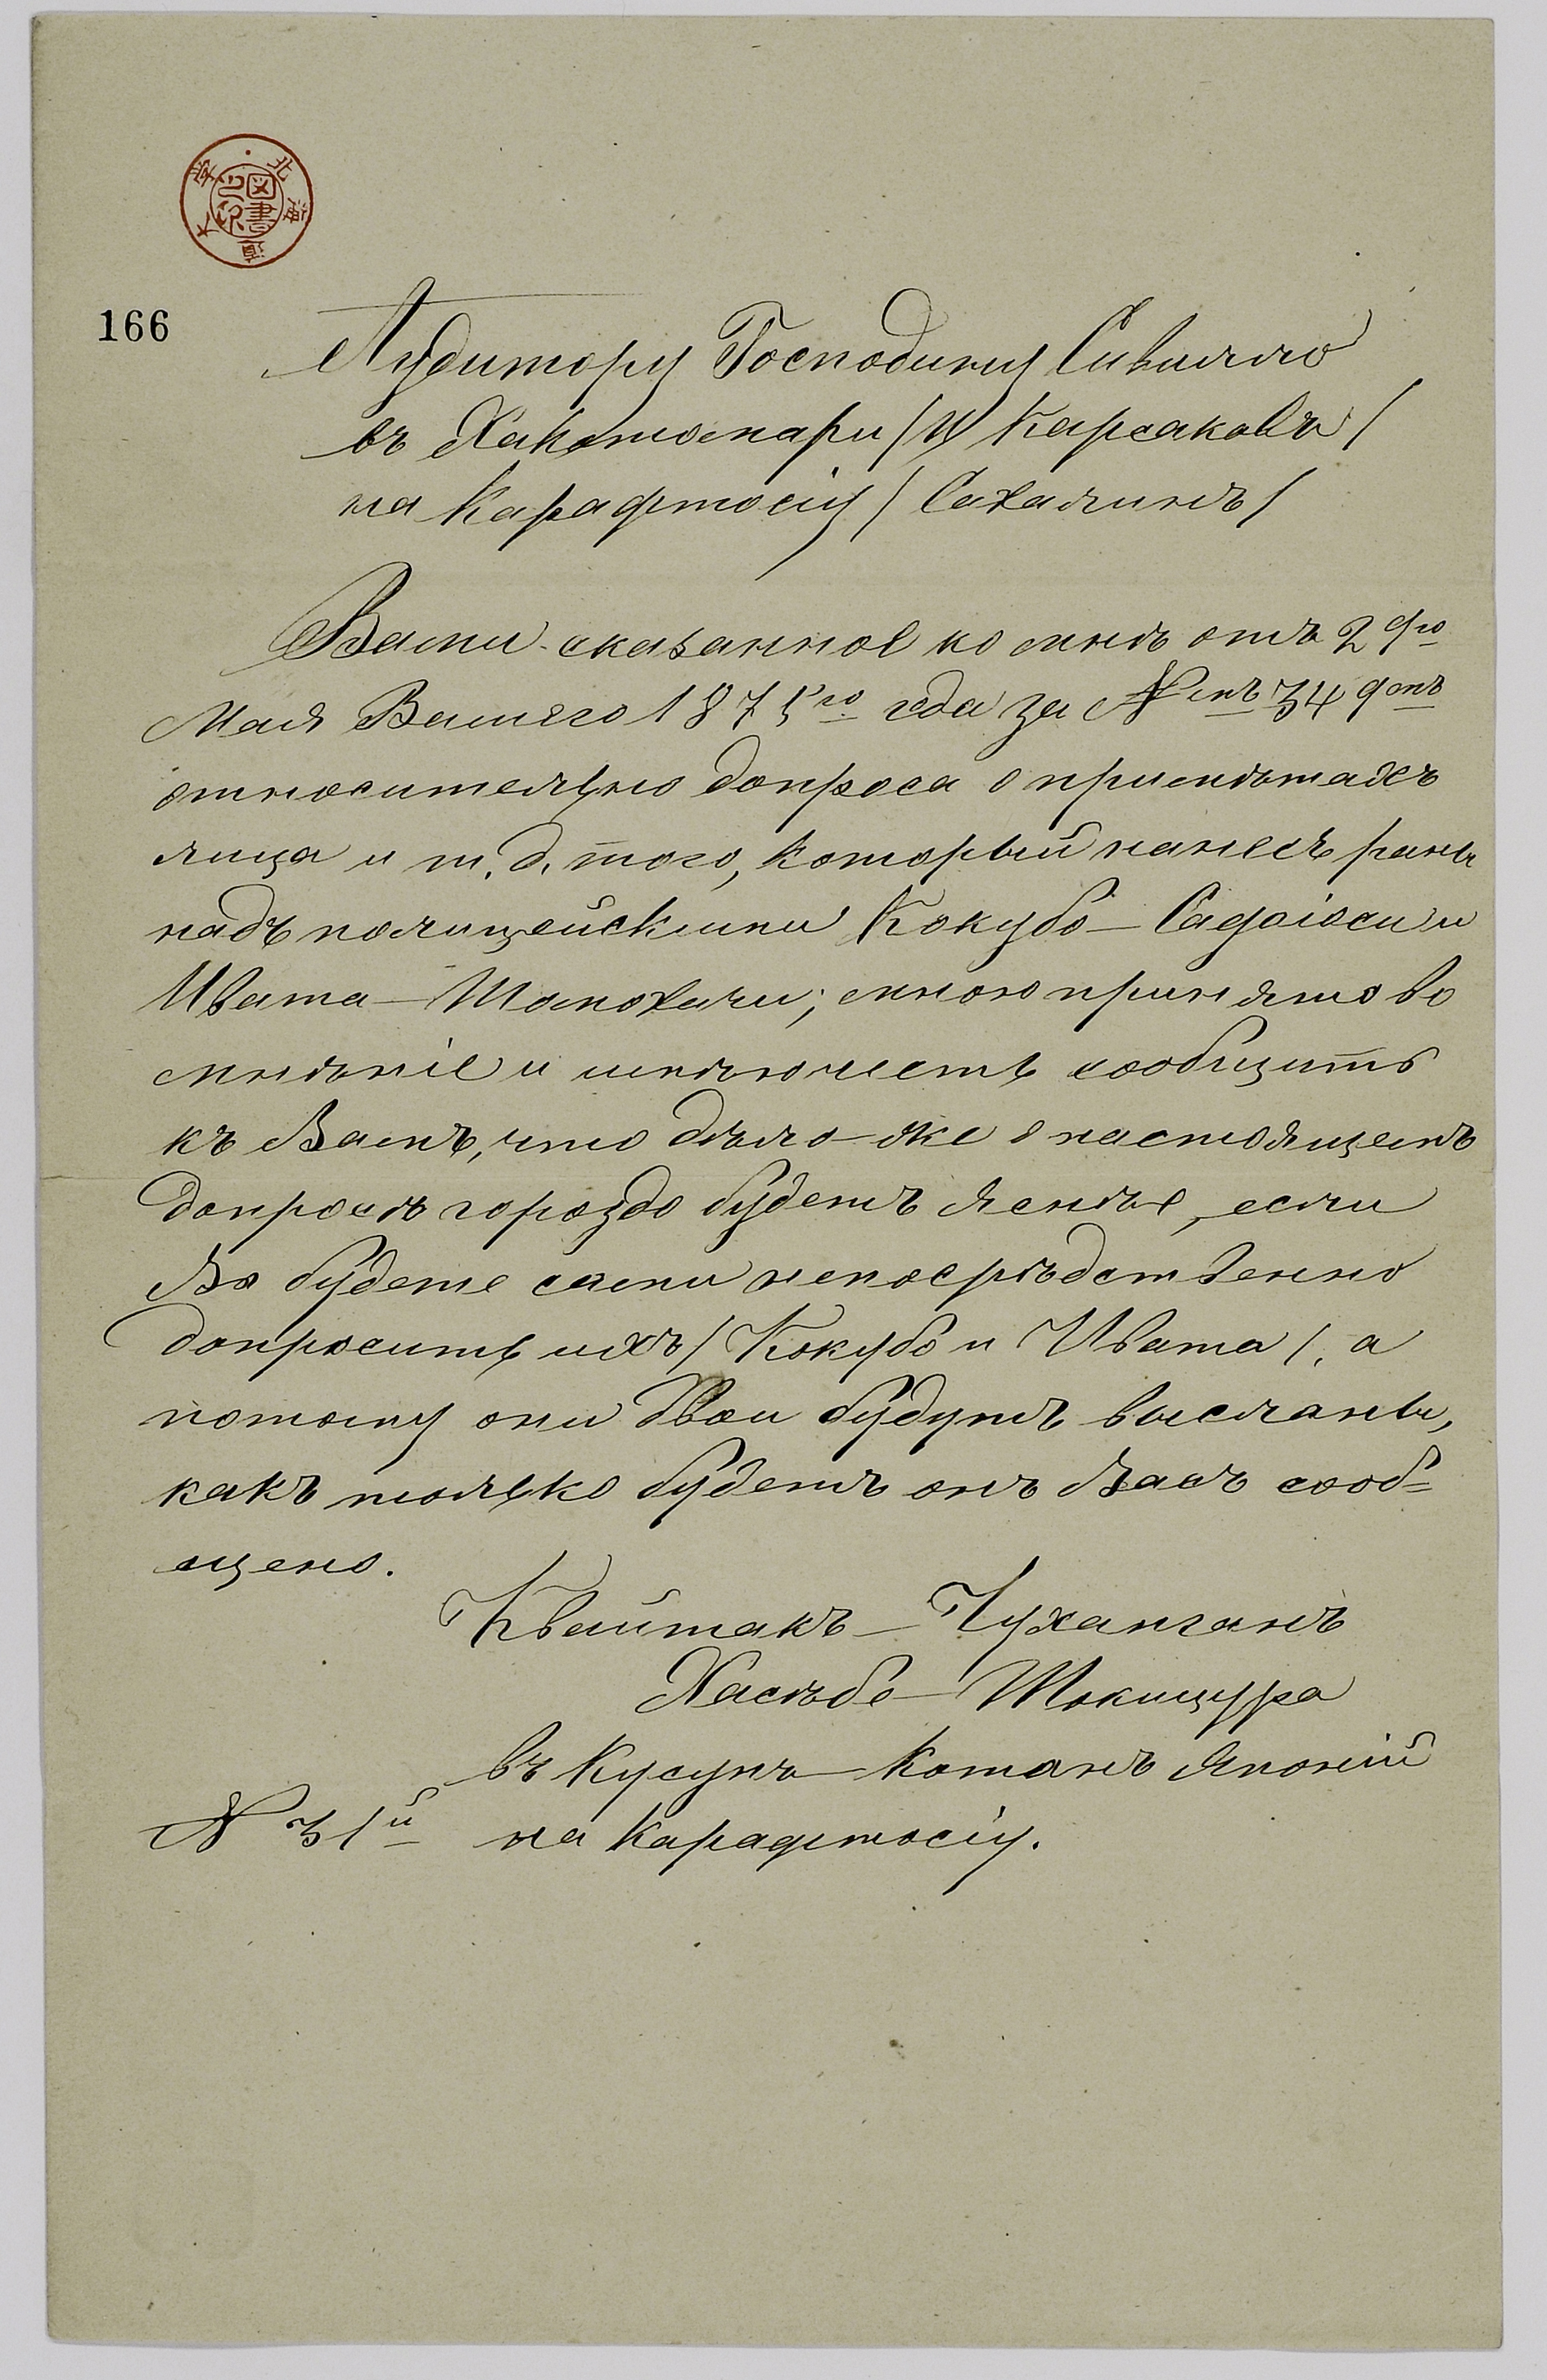 北海道大学
図書之印
166
Аудитору Господину Сивилло
въ Хакотомари /и Карсаковѣ/
на Карафтосіу / Сахалинѣ /
Вами сказанное ко мнѣ отъ 2го
Мая Вашего 1875го года за №мъ 34
относительно допроса о примѣтахъ
лица и т. д. того, который нанесъ раны
надъ полицейскими Кокубо–Садоіоси и
Ивата–Томохачи; мною принято во
мнѣніе и имѣю честь сообщить
къ Вамъ, что дѣло-же о настоящемъ
допросѣ гораздо будетъ яснѣе, если
Вы будете сами непосрѣдственно
допросить ихъ / Кокубо и Ивата /, а
потому они двои будутъ высланы,
какъ только будетъ отъ Васъ сооб=
щено.
Квайтакъ–Чухангань
Хасебе–Токицура
въ Кусунъ–Котанъ Японій
№ 31й на Карафтосіу.